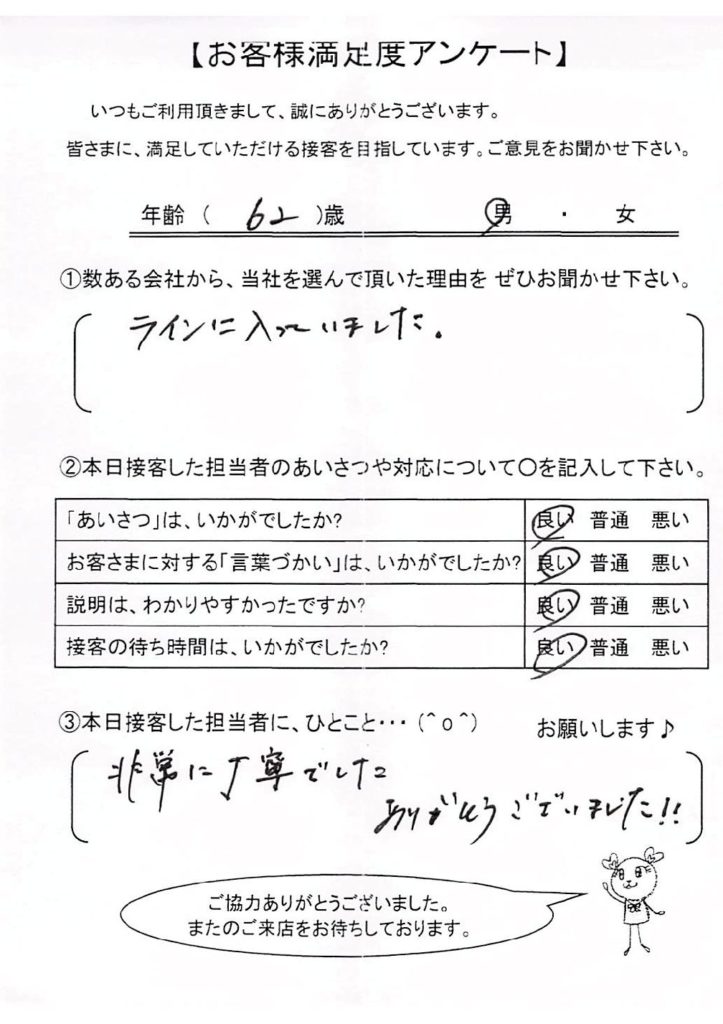 【お客様満足度アンケート】
いつもご利用頂きまして、誠にありがとうございます。
皆さまに、満足していただける接客を目指しています。ご意見をお聞かせ下さい。
年齢（ 62 ）歳 男 ・ 女
①数ある会社から、当社を選んで頂いた理由を ぜひお聞かせ下さい。
ラインに入っていました。
②本日接客した担当者のあいさつや対応について〇を記入して下さい。
「あいさつ」は、いかがでしたか? 良い 普通 悪い
お客さまに対する「言葉づかい」は、いかがでしたか? 良い 普通 悪い
説明は、わかりやすかったですか? 良い 普通 悪い
接客の待ち時間は、いかがでしたか? 良い 普通 悪い
③本日接客した担当者に、ひとこと・・・（＾o＾） お願いします♪
非常に丁寧でした
ありがとうございました!!
ご協力ありがとうございました。
またのご来店をお待ちしております。